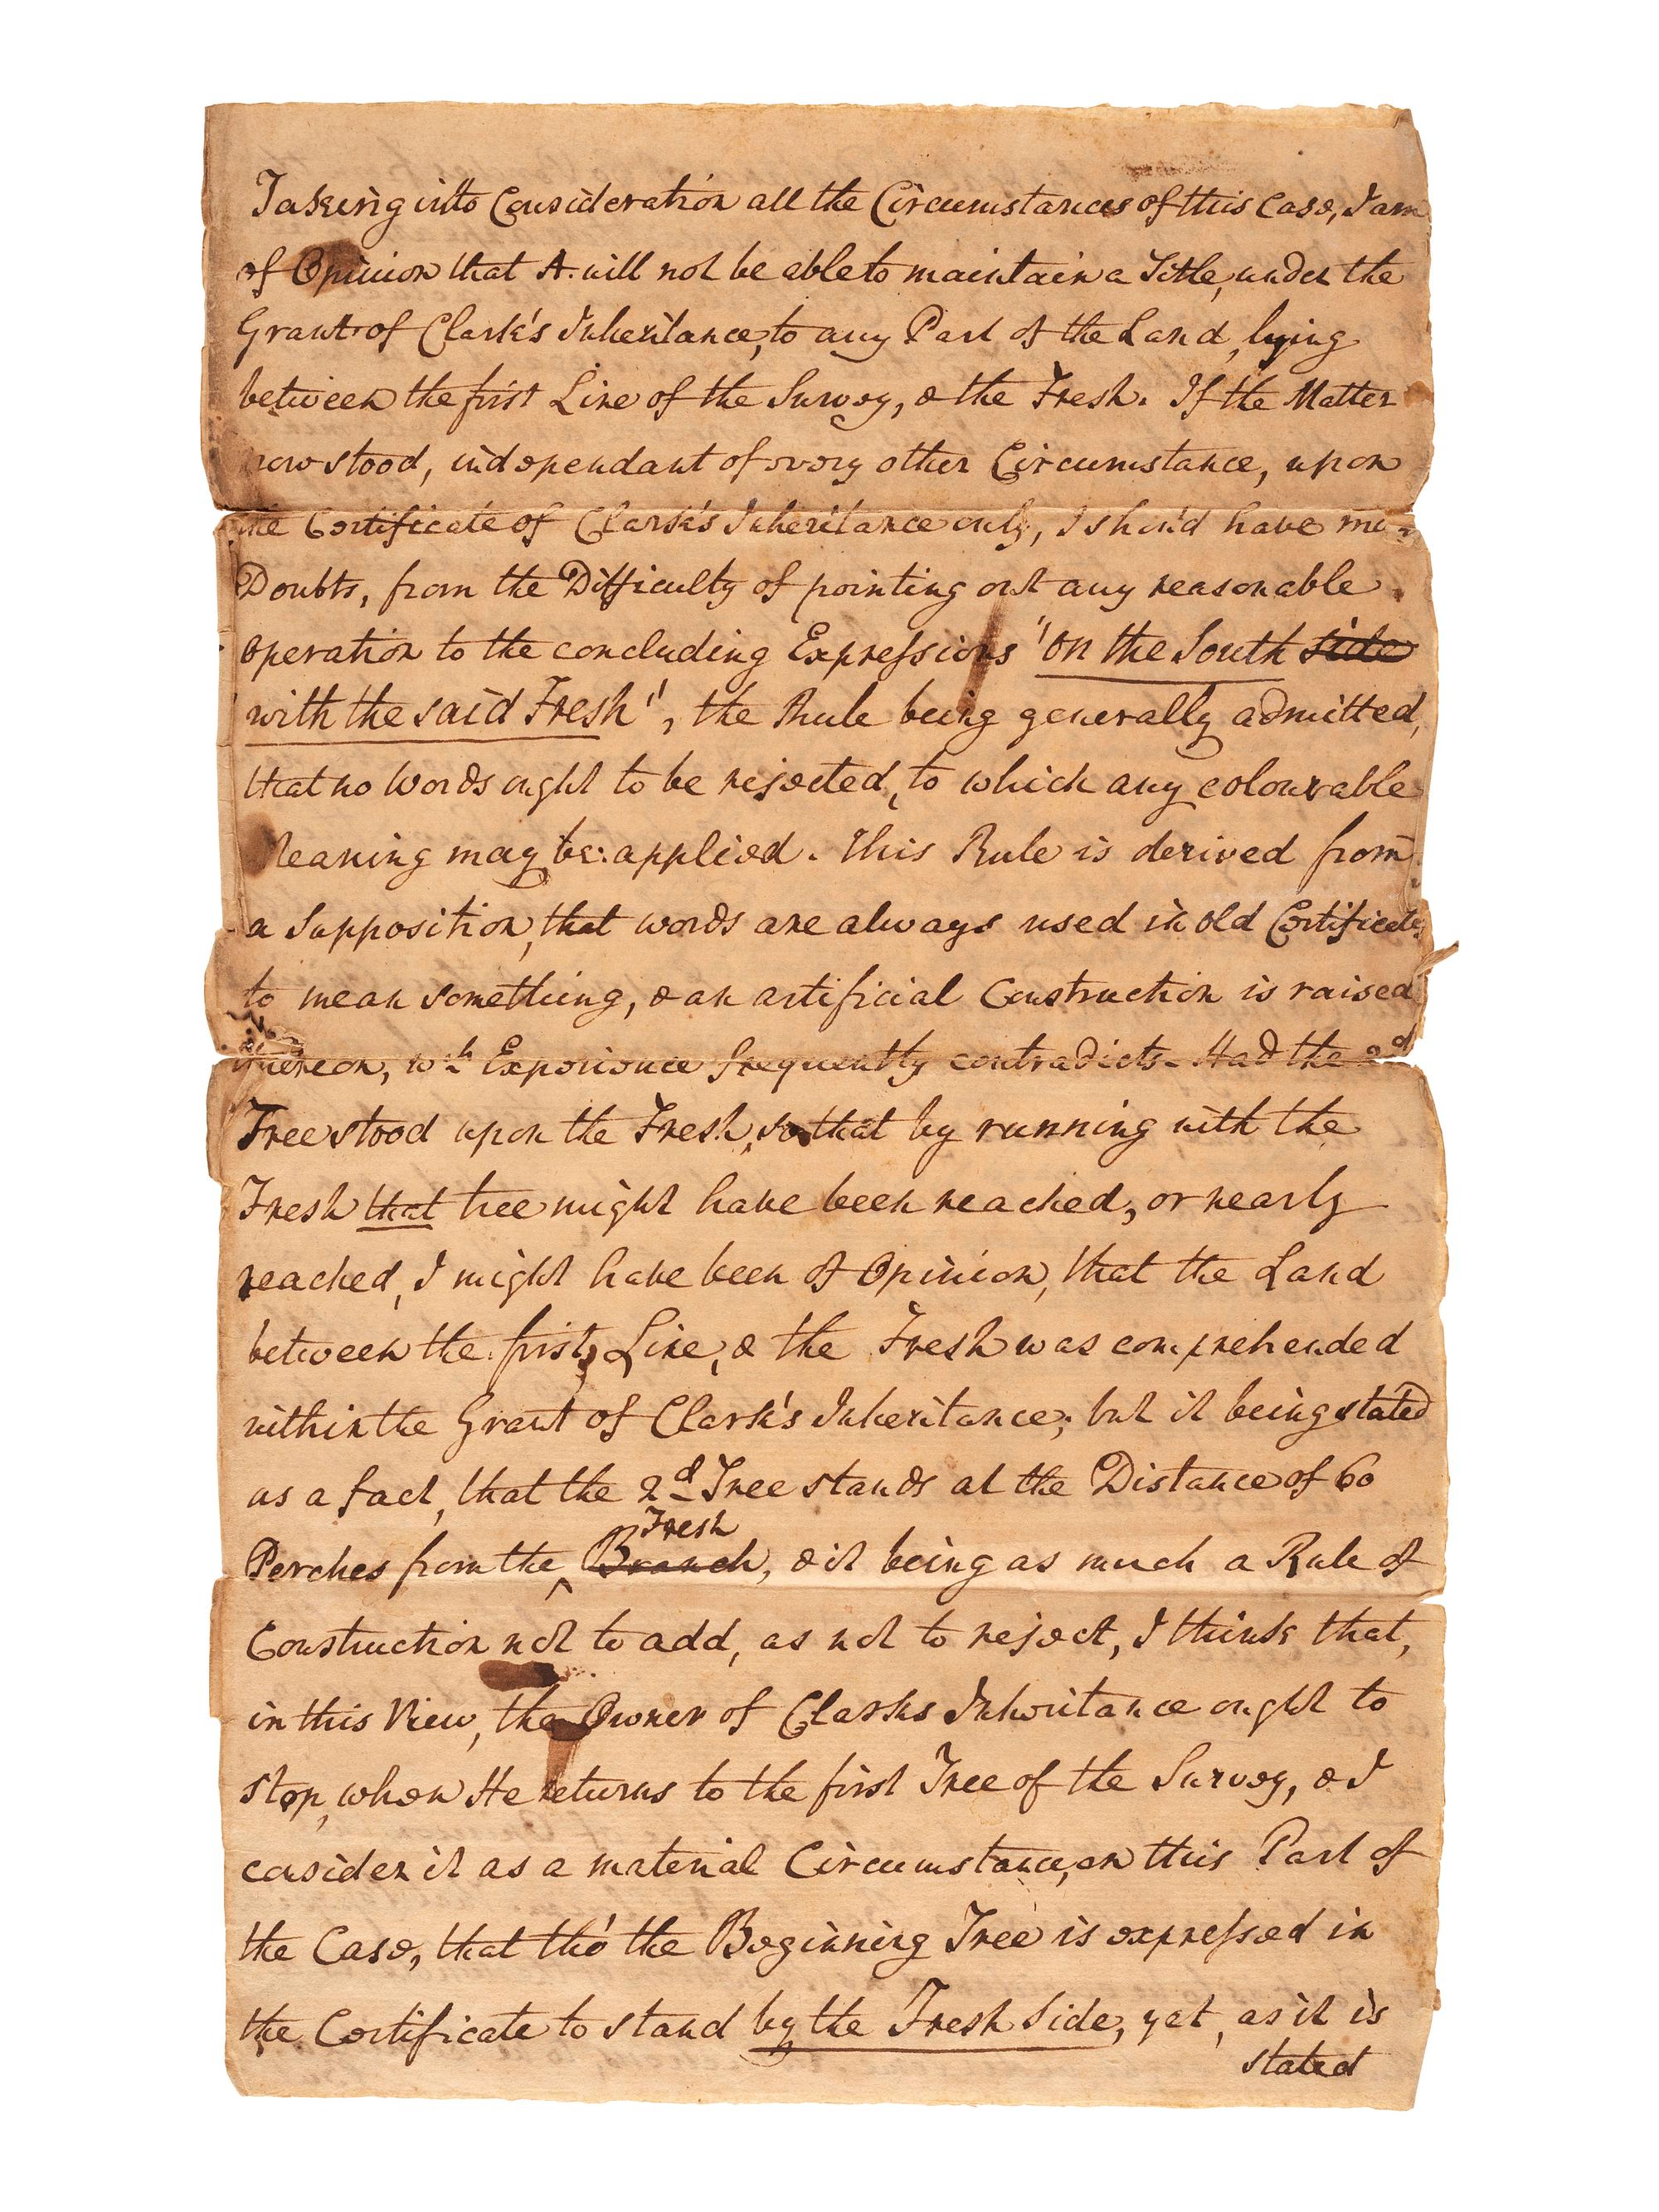 Taking into Consideration all the Circumstances of this Case, I am
of Opinion that A. will not be able to maintain a Title, under the
Grant of Clark's Inheritance, to any Part of the Land, lying
between the first Line of the Survey, & the Fresh. If the Matter
now stood, independant of every other Circumstance, upon
the Certificate of Clark's Inheritance only, I shou'd have my
Doubts, from the Difficulty of pointing out any reasonable
operation to the concluding Expressions "on the South side
with the said Fresh", the Rule being generally admitted,
that no Words ought to be rejected, to which any colourable
Meaning may be applied. This Rule is derived from
a Supposition, that words are always used in old Certificates
to mean something, & an artificial Construction is raised
thereon, wch Experience frequently contradicts. Had the 2d
Tree stood upon the Fresh, so that by running with the
Fresh that tree might have been reached, or nearly
reached, I might have been of Opinion, that the Land
between the first Line, & the Fresh was comprehended
within the Grant of Clark's Inheritance; but it being stated
as a fact, that the 2d Tree stands at the Distance of 60
Fresh
Perches from the Branch, & it being as much a Rule of
Construction not to add, as not to reject, I think that,
in this View, the Owner of Clarks Inheritance ought to
stop, when He returns to the first Tree of the Survey, & I
cosider it as a material Circumstance, on this Part of
the Case, that tho' the Beginning Tree is expressed in
the Certificate to stand by the Fresh Side, yet, as it is
stated